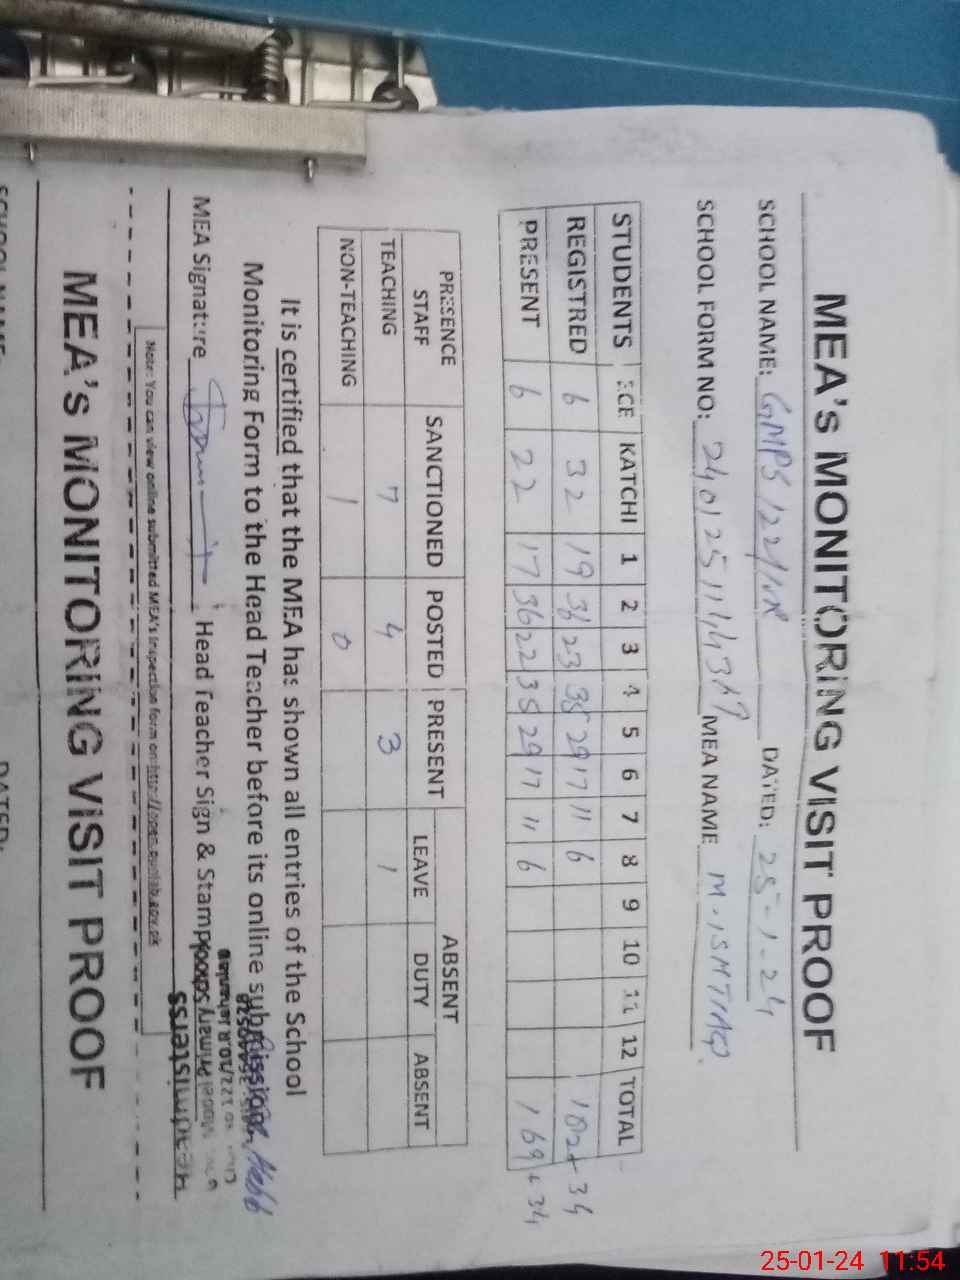 MEA's MONITORING VISIT PROOF
SCHOOL NAME: GMPS 122/NR DATED: 25-1-24
SCHOOL FORM NO: MEA NAME M. ISHTIAQ
STUDENTS ECE KATCHI 1 2 3 4 5 6 7 8 9 10 11 12 TOTAL
REGISTRED 6 32 19 36 23 38 29 17 11 6 182+34
PRESENT 6 22 17 36 22 35 29 17 11 6 169+34
PRESENCE STAFF SANCTIONED POSTED PRESENT ABSENT
LEAVE DUTY ABSENT
TEACHING 7 4 3 1
NON-TEACHING 1 0
It is certified that the MEA has shown all entries of the School
Monitoring Form to the Head Teacher before its online submission.
MEA Signature Head Teacher Sign & Stamp
Headmistress
Model Primary School
122/10.R Jehanian
Note: You can view online submitted MEA's Inspection form on: http://open.punjab.gov.pk
MEA's MONITORING VISIT PROOF
SCHOOL NAME: DATED:
25-01-24 11:54